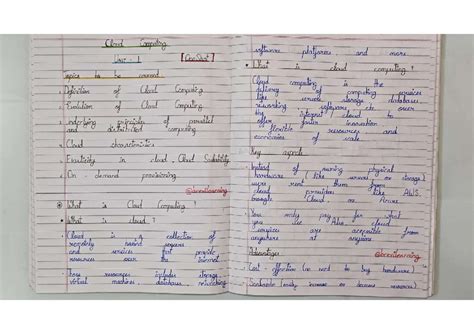 Cloud Computing
Unit - 1 [OneShot]
Topics to be covered
Definition of Cloud Computing
Evolution of Cloud Computing
Underlying principles of parallel
and distributed computing
Cloud characteristics
Elasticity in cloud, Cloud Scalability
On - demand provisioning
@bccetlearning
What is Cloud Computing ?
What is cloud ?
Cloud is a collection of
remotely
and services that provide
resources over the internet
These resources includes storage,
virtual machine, databases, networking
software platforms and more
What is cloud computing ?
Cloud computing is the
delivery of computing services
like servers, storage, databases
networking, software etc over
the internet cloud to
offer faster innovation
flexible resources and
economies of scale
Key aspects
Instead of owning physical
hardware (like servers or storage)
users rent them from
cloud providers like AWS,
Google Cloud or Azure
You only pay for what
you use Also, cloud
services are accessible from
anywhere at anytime
Advantages @bccetlearning
Cost - effective (no need to buy hardware)
Scalable (easily increase or decrease resources)